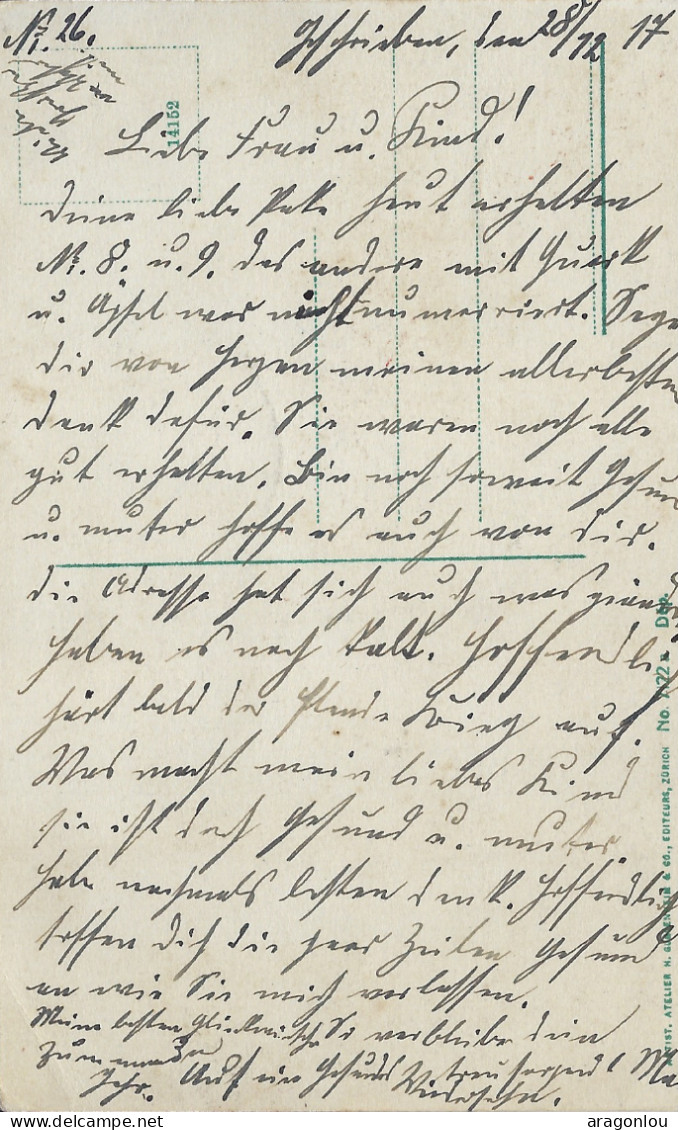 Nr. 26.
Geschrieben, den 28/12 17
14152
Liebe Frau u. Kind!
Deine liebe Pake heut erhalten
Nr. 8. u. 9. das andere mit Quark
u. Äpfel war nicht numerriert. Sage
dir von Herzen meinen allerbesten
Dank dafür. Sie waren noch alle
gut erhalten. Bin noch soweit Gesund
u. munter hoffe es auch von dir.
die Adresse hat sich auch was geändert
haben es noch kalt. Hoffendlich
hört bald der Krieg auf.
Was macht mein liebes Kind
sie ist doch Gesund u. munter
habe nochmals besten Dank. Hoffendlich
treffen dich die paar Zeilen Gesund
an wie Sie mich verlassen.
Meine besten Glückwünsche So verbleibe dein
zum neuen treusorgend
Jahr. Auf ein Gesundes Wiedersehn.
ARTIST. ATELIER H. GUGGENHEIM & CO., EDITEURS, ZÜRICH No. Dép.
aragonlou